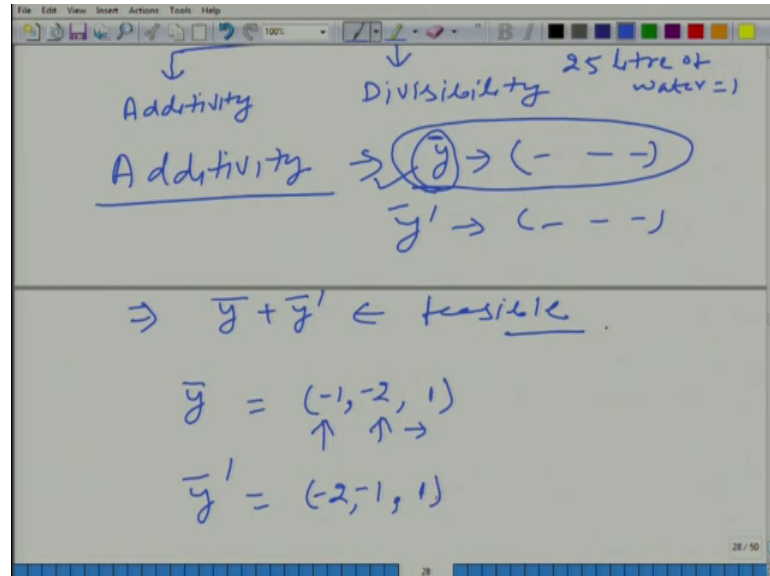 File Edit View Insert Actions Tools Help
100%
Additivity Divisibility 25 litre of
water = 1
Additivity ⇒ ȳ → (- - -)
ȳ' → (- - -)
⇒ ȳ + ȳ' ∈ feasible.
ȳ = (-1, -2, 1)
↑ ↑ →
ȳ' = (-2, -1, 1)
28 / 50
28